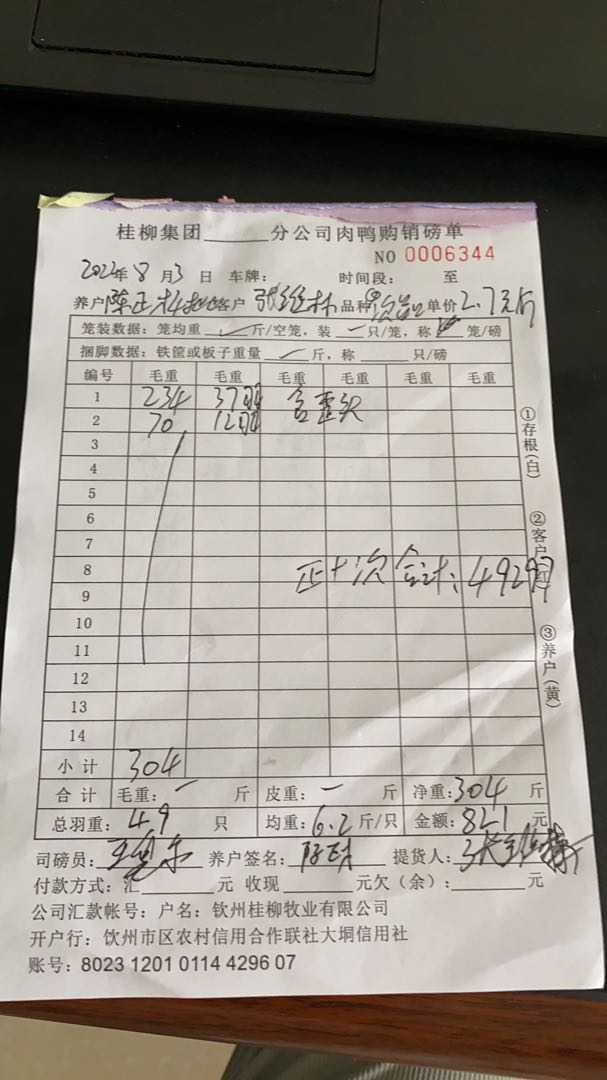 桂柳集团______分公司肉鸭购销磅单
NO 0006344
2022年8月3日 车牌: 时间段: 至
养户 陈正 客户 张维林 品种 单价2.7元/斤
笼装数据: 笼均重 斤/空笼, 装 只/笼, 称 笼/磅
捆脚数据: 铁筐或板子重量 斤, 称 只/磅
编号 毛重 毛重 毛重 毛重 毛重 毛重
1 234 37只 含歪头
2 70 12只
3
4
5
6
7
8 合计: 4929只
9
10
11
12
13
14
小计 304
合计 毛重: 一 斤 皮重: 一 斤 净重: 304 斤
总羽重: 49 只 均重: 6.2 斤/只 金额: 821 元
司磅员: 养户签名: 提货人:
付款方式: 汇______元 收现______元欠(余):______元
公司汇款帐号: 户名: 钦州桂柳牧业有限公司
开户行: 钦州市区农村信用合作联社大垌信用社
账号: 8023 1201 0114 4296 07
①存根(白)
②客户(红)
③养户(黄)